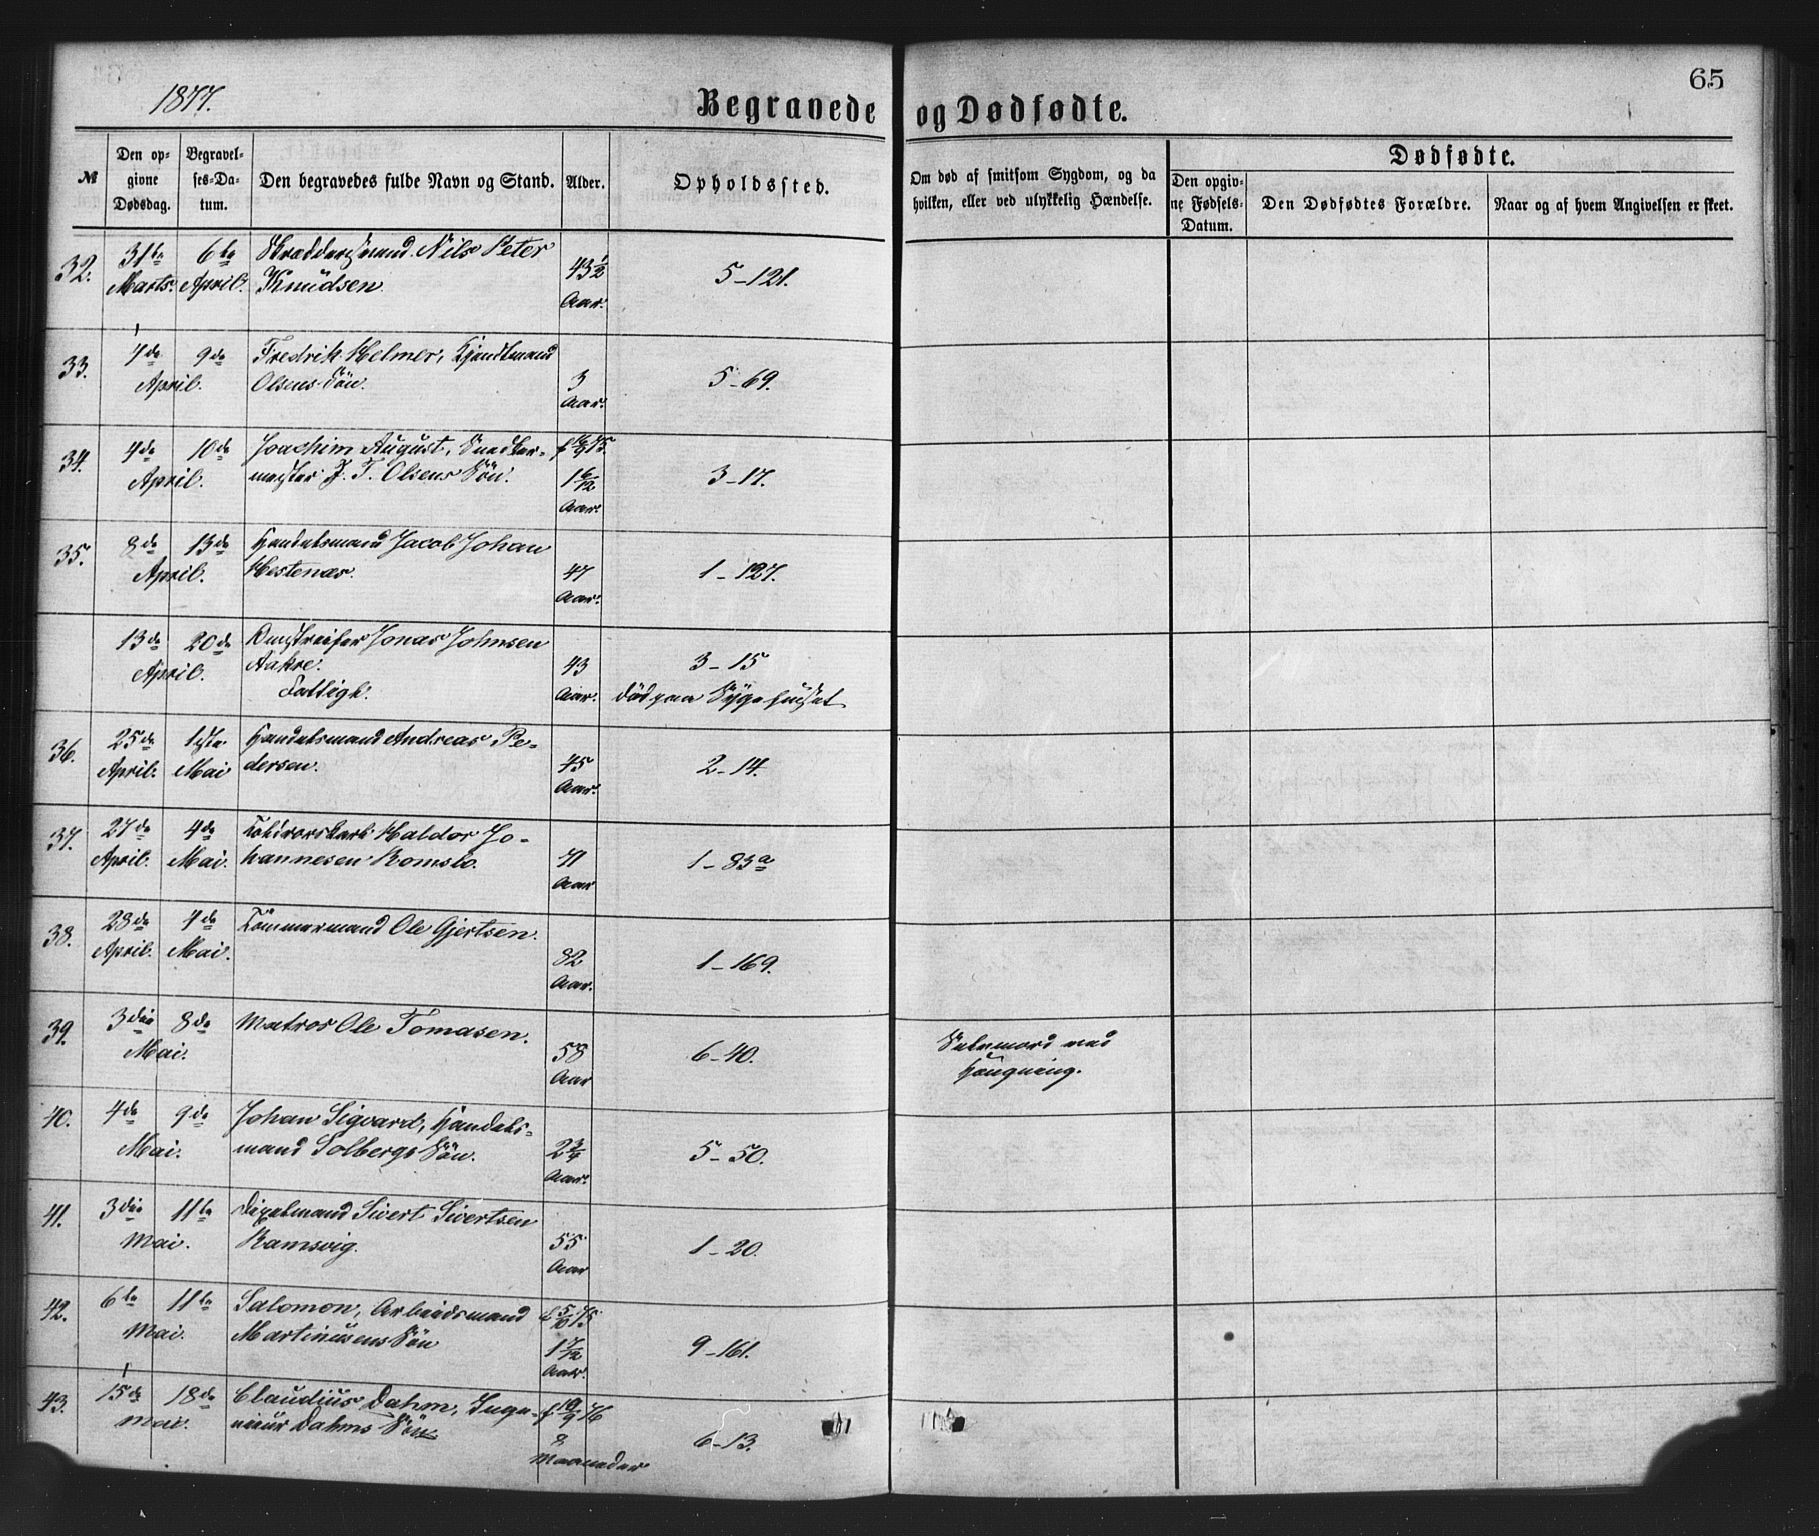 65
1877.
Begravede og Dødfødte.
№
Den opgivne Dødsdag.
Begravelses-Datum.
Den begravedes fulde Navn og Stand.
Alder.
Opholdssted.
Om død af smitsom Sygdom, og da hvilken, eller ved ulykkelig Hændelse.
Dødfødte.
Den opgivne Fødsels-Datum.
Den Dødfødtes Forældre.
Naar og af hvem Angivelsen er skeet.
32. 31te 6te Skræddersvend Nils Peter 43½
Marts. April. Knudsen. Aar. 5-121.
33. 7de 9de Fredrik Helmer,
April. Olsens Søn. 3 Aar. 5-69.
34. 4de 10de Joachim August, Snedker- f 16/9 75.
April. mester J. T. Olsens Søn. 1 6/12 Aar. 3-17.
35. 8de 13de Handelsmand Jacob Johan
April. Hestenæs. 47 Aar. 1-127.
13de 20de Omstreifer Jonas Johnsen
April. Aakre. 43 3-15
Fattigk. Aar. død paa Sygehuset
36. 25de 1ste Handelsmand Andreas Pe-
April. Mai dersen. 45 Aar. 2-14.
37. 27de 4de Haldor Jo-
April. Mai. hannesen Romslo. 41 Aar 1-83a
38. 28de 4de Tømmermand Ole Gjertsen.
April. Mai. 82 Aar. 1-169.
39. 3die 8de Matros Ole Tomasen. Selvmord ved
Mai. 58 Aar 6-40. Hængning.
40. 4de 9de Johan Sigvard, Handels-
Mai. mand Solbergs Søn. 2¾ Aar. 5-50.
41. 3die 11te Sivert Sivertsen
Mai. Ramsvig. 55 Aar 1-20.
42. 6te 11te Salomon, Arbeidsmand f 5/10 75
Mai. Martinusens Søn 1 7/12 Aar. 9-161.
43. 15de 18de Claudius Dahm, Inge- f 19/9 76
Mai. nieur Dahms Søn 8 Maaneder 6-13.